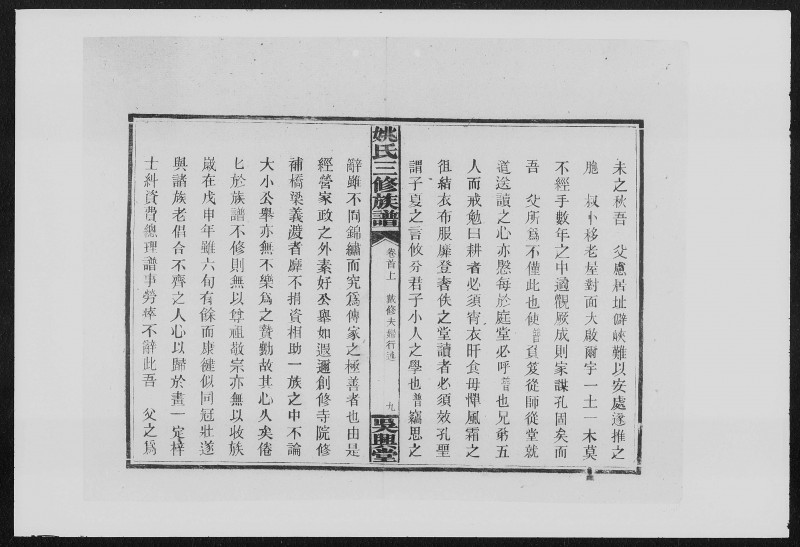 未之秋吾 父慮居址僻峽難以安處遂推之
胞 叔卜移老屋對面大啟爾宇一土一木莫
不經手數年之中適觀厥成則家謀孔固矣而
吾 父所爲不僅此也使 負笈從師從堂就
道送讀之心亦慇每於庭堂必呼 也兄弟五
人而戒勉曰耕者必須宵衣旰食毋憚風霜之
徂結衣布服靡登耆佚之堂讀者必須效孔聖
謂子夏之言攸分君子小人之學也普竊思之
姚氏三修族譜
卷首上
九
吳興堂
辭雖不同錦繡而究爲傳家之極善者也由是
經營家政之外素好公舉如遐邇創修寺院修
補橋梁義渡者靡不捐資相助一族之中不論
大小公舉亦無不樂爲之贊勷故其心久矣倦
匕於族譜不修則無以尊祖敬宗亦無以收族
嵗在戊申年雖六旬有餘而康健似同冠壯遂
與諸族老倡合不齊之人心以歸於畫一定梓
士糾資費總理譜事勞瘁不辭此吾 父之爲